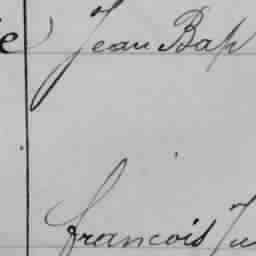 e) Jean Bap
francois Ju